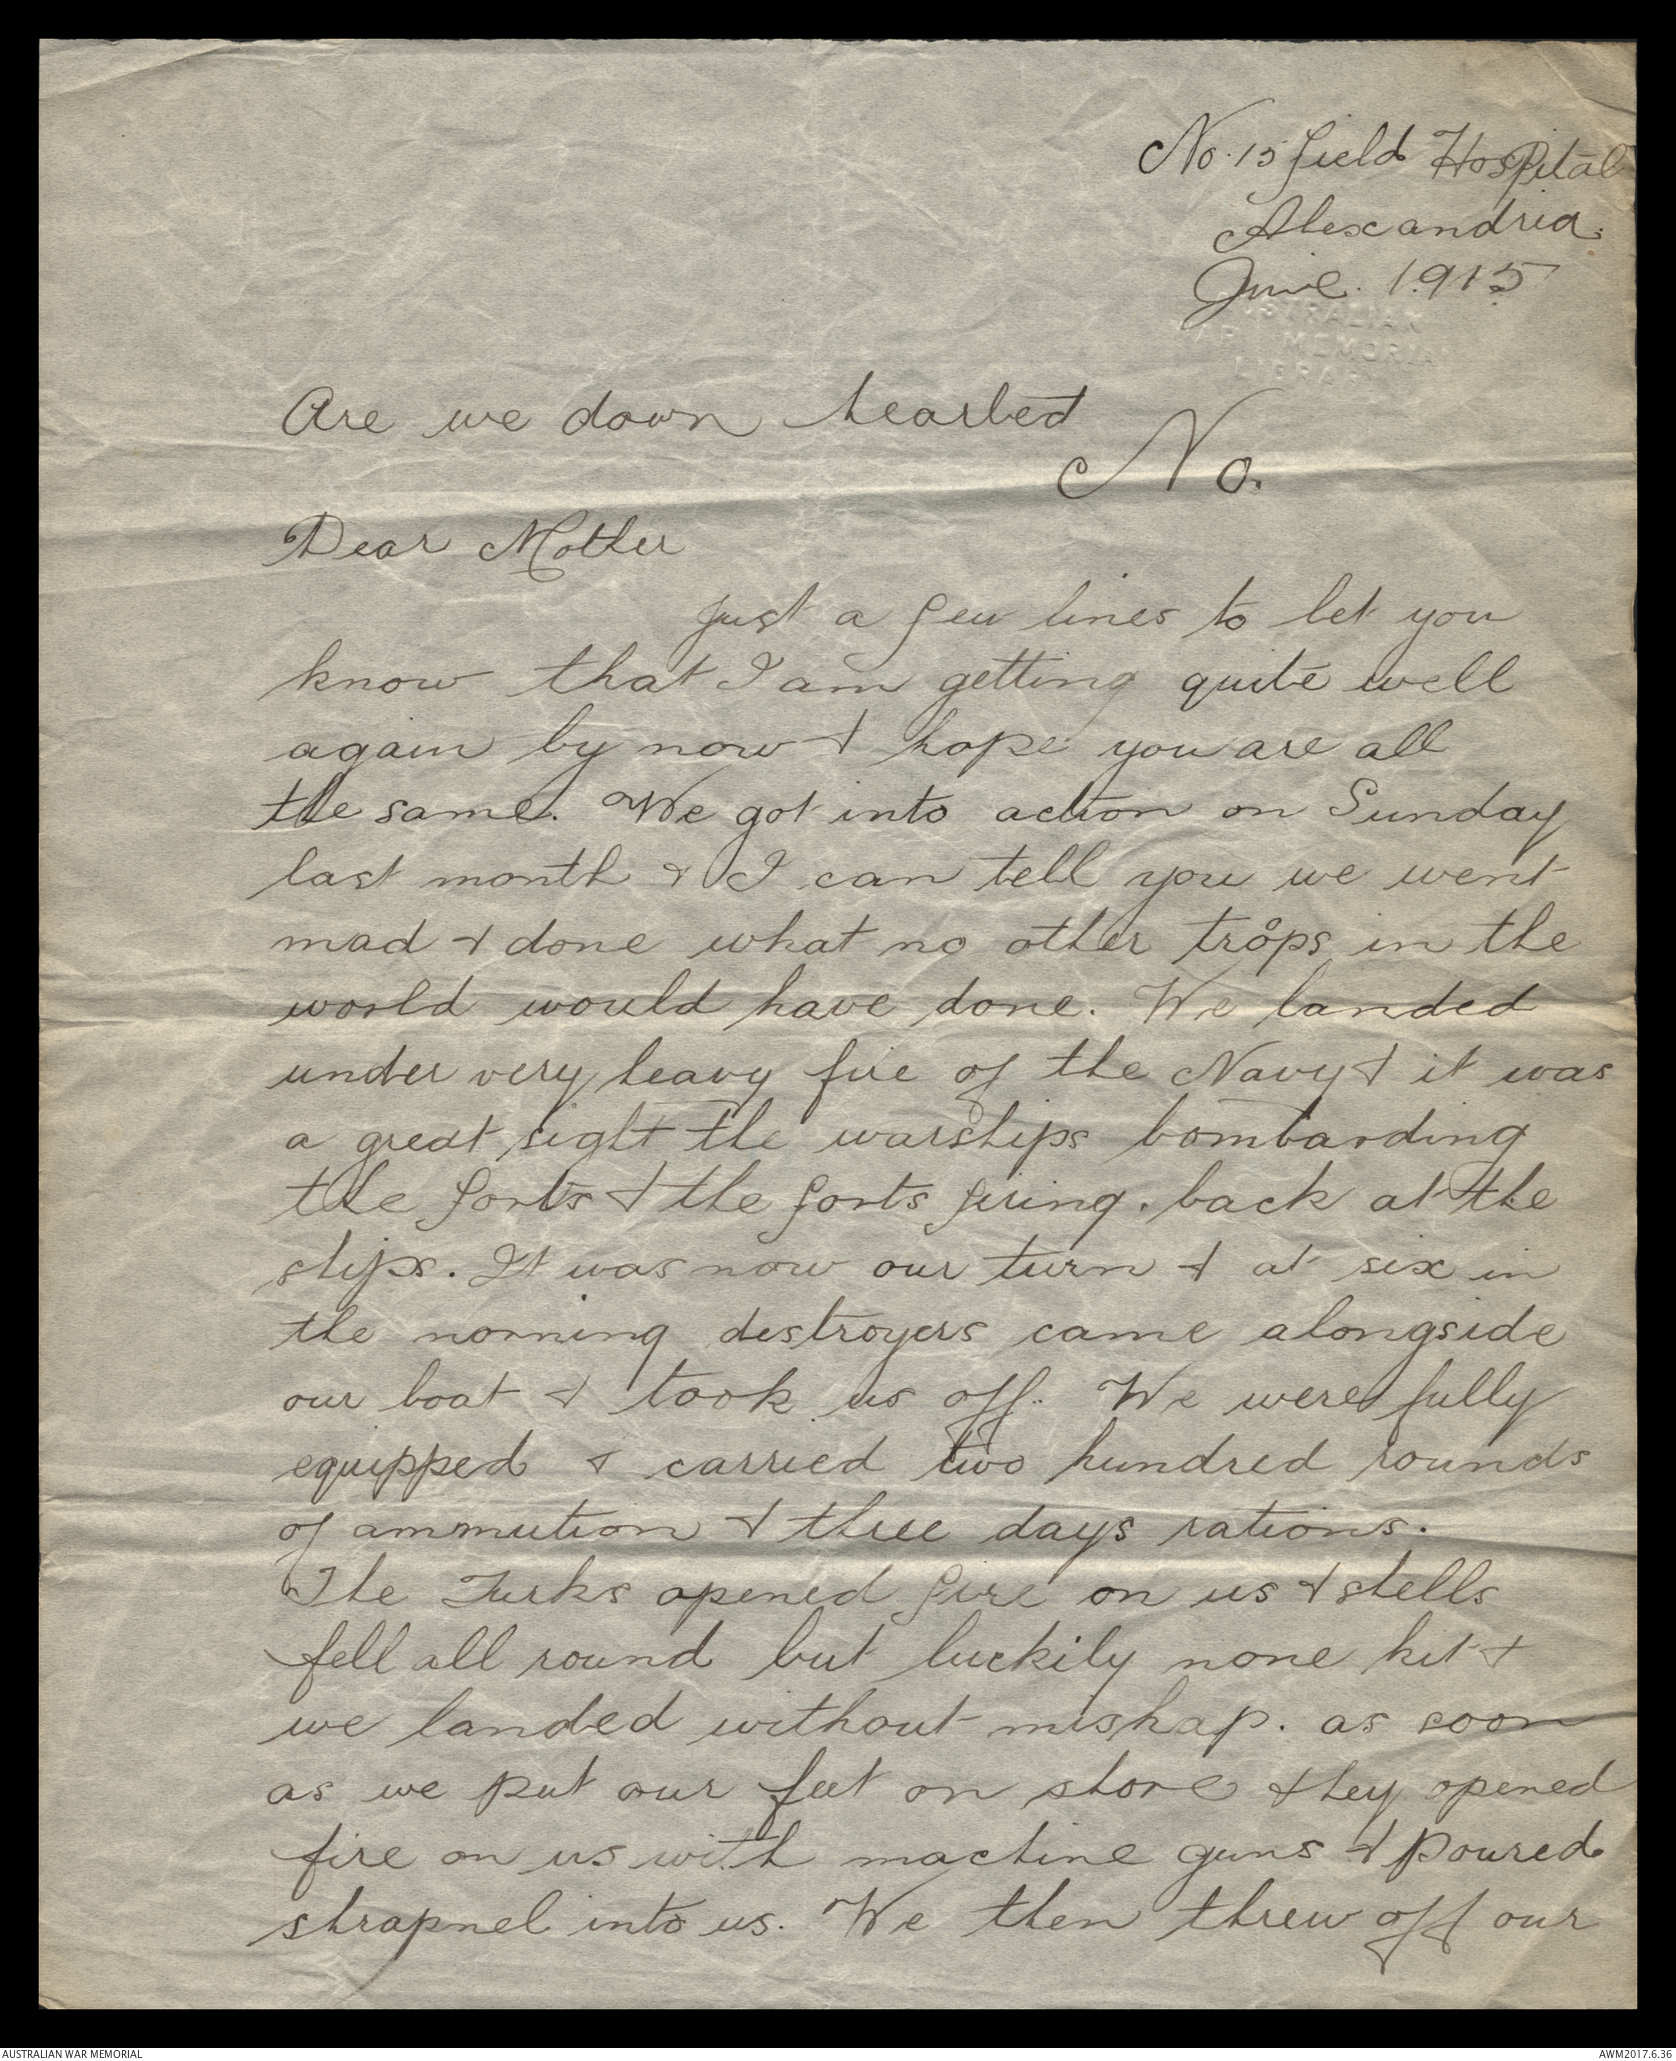 No. 15 field Hospital
Alexandria.
June. 1915
AUSTRALIAN
WAR MEMORIAL
LIBRARY
Are we down hearted
No.
Dear Mother
Just a few lines to let you
know that I am getting quite well
again by now & hope you are all
the same. We got into action on Sunday
last month & I can tell you we went
mad & done what no other troops in the
world would have done. We landed
under very heavy fire of the Navy & it was
a great sight the warships bombarding
the forts & the forts firing. back at the
ships. It was now our turn & at six in
the morning destroyers came alongside
our boat & took us off. We were fully
equipped & carried two hundred rounds
of ammution & three days rations.
The Turks opened fire on us & shells
fell all round but luckily none hit &
we landed without mishap. as soon
as we put our feet on shore they opened
fire on us with machine guns & poured
shrapnel into us. We then threw off our
AUSTRALIAN WAR MEMORIAL
AWM2017.6.36